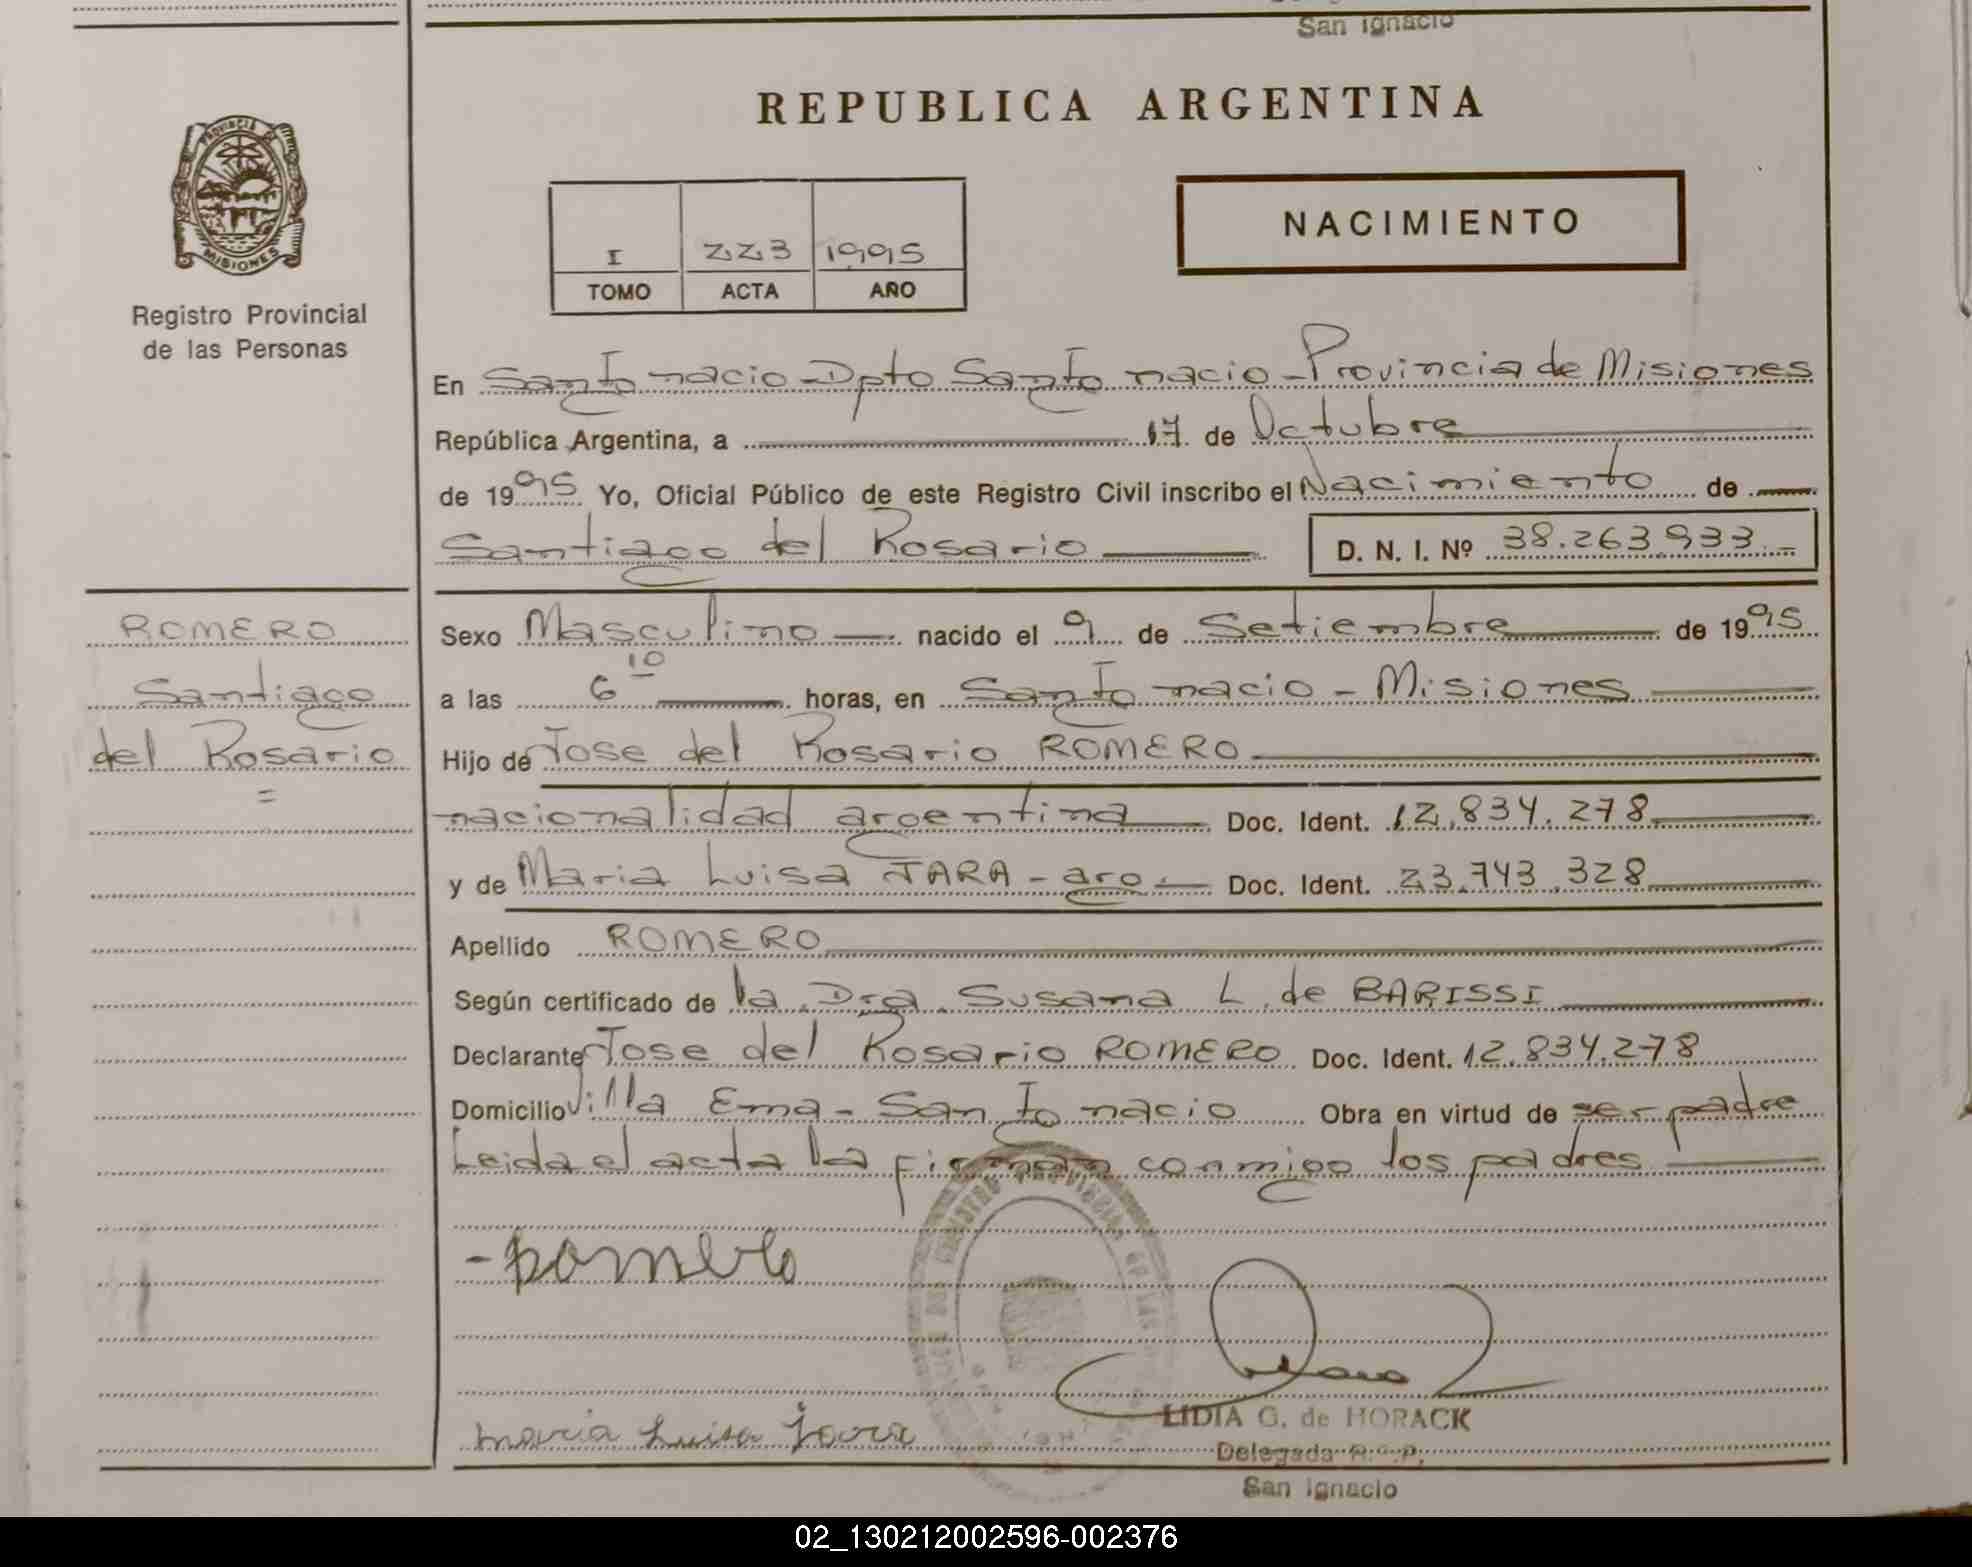 San Ignacio
REPUBLICA ARGENTINA
PROVINCIA DE
MISIONES
Registro Provincial
de las Personas
I 223 1995
TOMO ACTA AÑO
NACIMIENTO
En San Ignacio - Dpto San Ignacio - Provincia de Misiones
República Argentina, a 17 de Octubre
de 1995 Yo, Oficial Público de este Registro Civil inscribo el Nacimiento de
Santiago del Rosario D. N. I. Nº 38.263.933.-
ROMERO
Santiago
del Rosario
=
Sexo Masculino nacido el 9 de Setiembre de 1995
a las 6 10 horas, en San Ignacio - Misiones
Hijo de Jose del Rosario ROMERO
nacionalidad argentina Doc. Ident. 12.834.278
y de Maria Luisa JARA - arg. Doc. Ident. 23.743.328
Apellido ROMERO
Según certificado de la Dra. Susana L. de BARISSI
Declarante Jose del Rosario ROMERO Doc. Ident. 12.834.278
Domicilio Villa Ema - San Ignacio Obra en virtud de ser padre
Leida el acta la firman conmigo los padres
- Romero
Maria Luisa Jara
LIDIA G. de HORACK
Delegada R. P.
San Ignacio
02_130212002596-002376